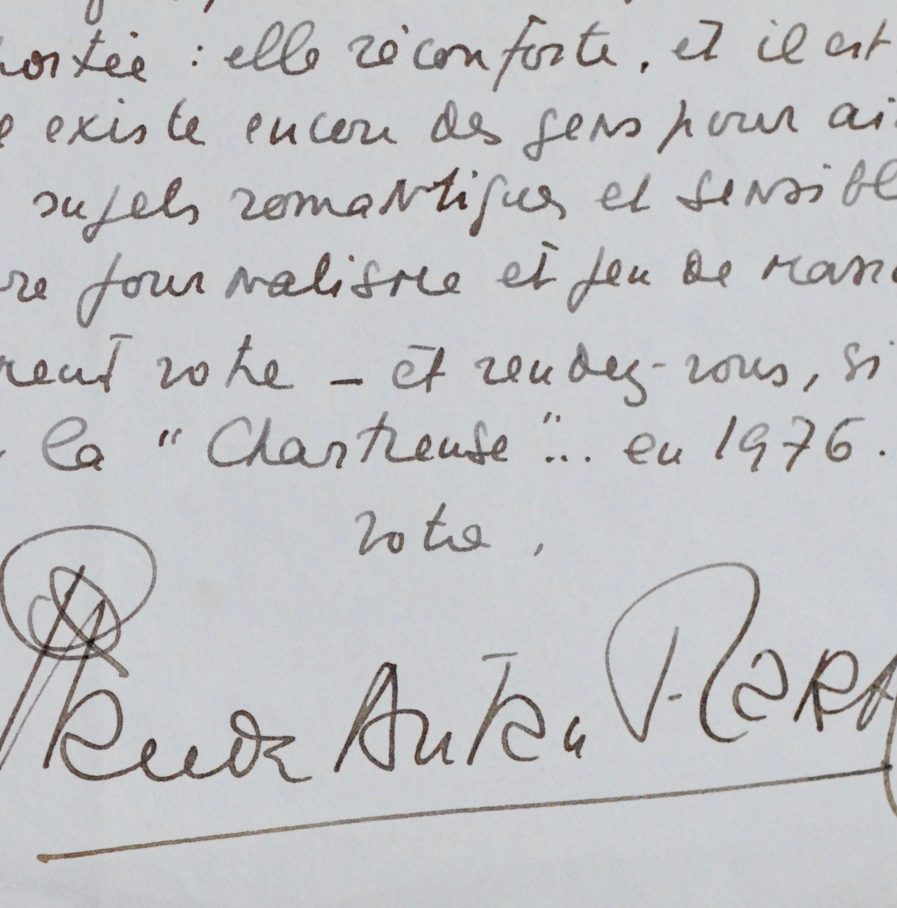 portée : elle réconforte, et il est
existe encore des gens pour ai
sujets romantiques et sensibl
re journalisme et jeu de massa
rent votre – et rendez-vous, si
la "Chartreuse"... en 1976.
votre,
Claude Autan